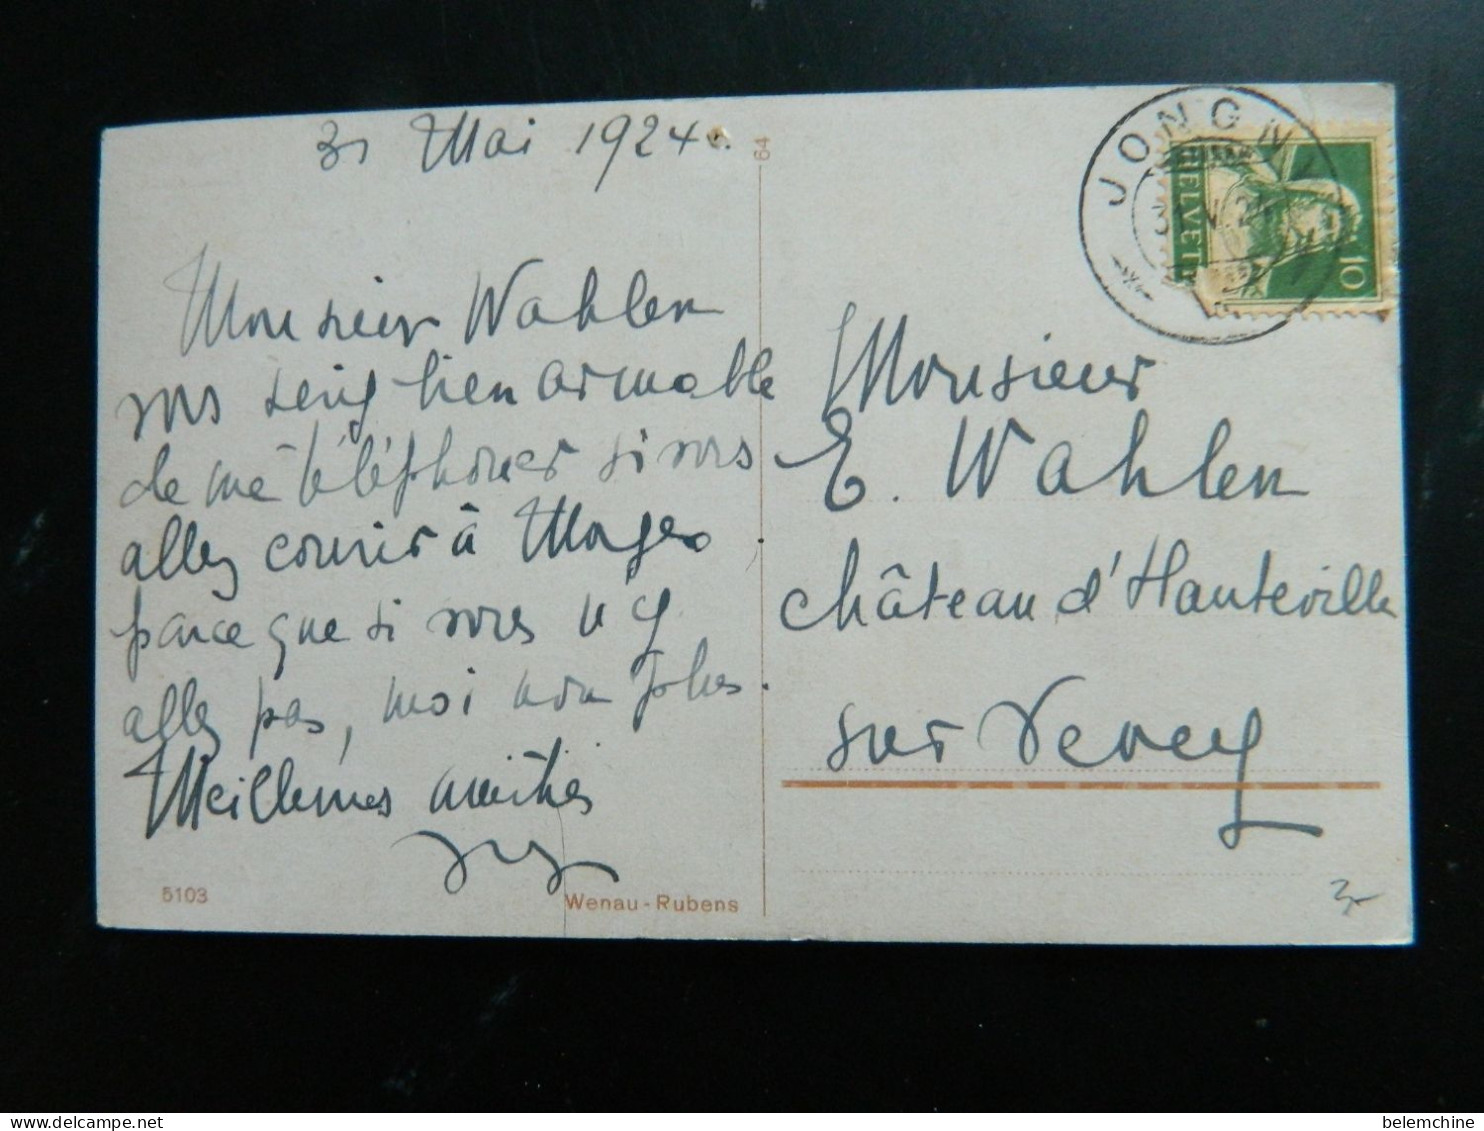 31 Mai 1924.
Monsieur Wahlen
vous seriez bien aimable
de me téléphoner si vous
allez courir à Morges
parce que si vous n'y
allez pas, moi non plus.
Meilleures amitiés
5103
Wenau-Rubens
64
JONGNY
31.V.24
HELVETIA
10
Monsieur
E. Wahlen
Château d'Hauteville
sur Vevey
3-
belemchine